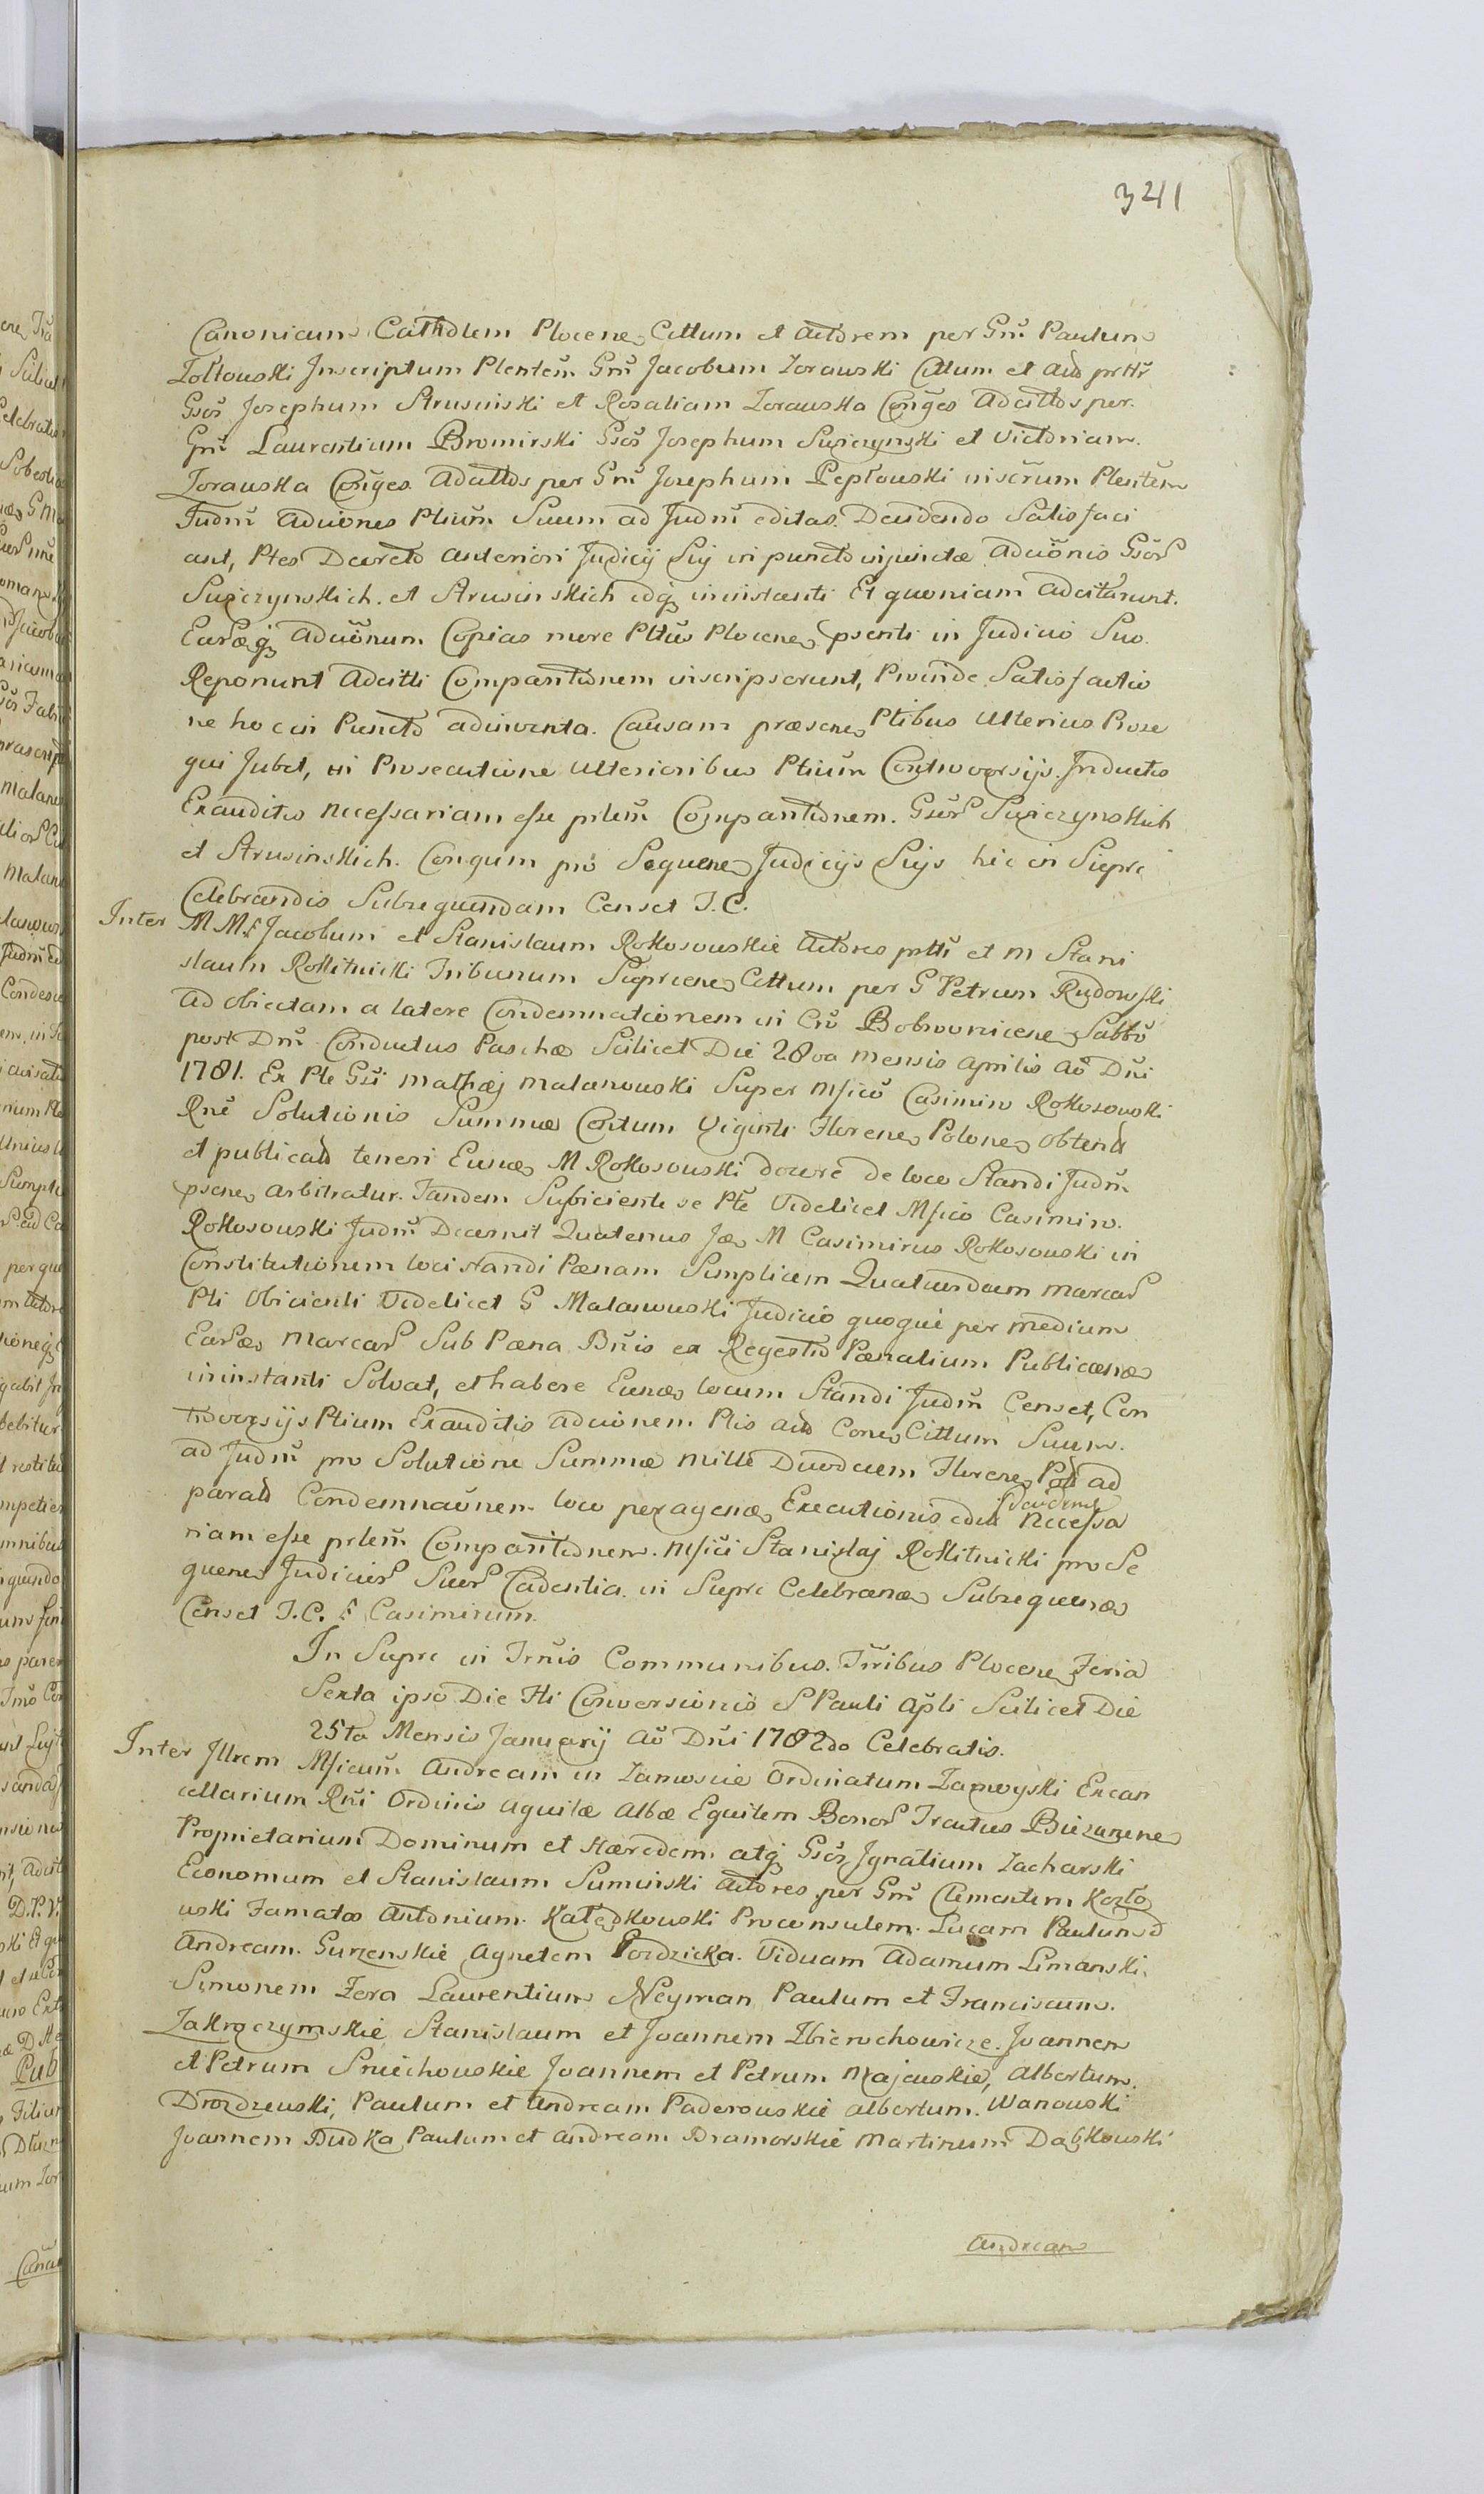 341
Canonicum Cathdlem Plocenes Cittum et Actorem per Gnũ Paulum
Zołtowski Inscriptum Plentem̃ Gnũ Jacobum Zorawski Cittum et
Gsos̃ Josephum Strusinski et Rozaliam Zorawska Conges Adcittos per
Gnũ Laurentium Bromirski Gsos̃ Josephum Suxczynski et Victoriam
Zorawska Conges Adcittos per Gnũ Josephum Pepłowski Plentem̃
Judm̃ Adcic̃ones Ptium̃ Suum ad Judm̃ editas Decidendo Satisfaci
ant, Ptes Decreto anteriori Judicij Sij in puncto injunctæ Adcit̃onis Gsor̃
Suxczynskich et Strusinskich edq̃ ininstanti Et quoniam adcitarunt
Earq̃ Adcit̃onum Copias more Plocenes psenti in Judicio Suo
Reponunt Adcitti Comparitionem inscripserunt, Proinde Satisfactio
ne hoc in Puncto adinventa Causam præsenes Ptibus Ulterius Prose
qui Jubet, in Prosecutione Ulterioribus Ptium̃ Controversijs Inductis
Exauditis necessariam esse prlem̃ Comparitionem Gsor̃ Suxczynskich
et Strusinskich Congum pro Sequenes Judicijs Sijs hic in Sieprc
Celebrandis Subsequendam Censet J.C.
Inter M M. Jacobum et Stanislaum Rokosowskie Actores et M Stani
slaum Rokitnicki Tribunum Sieprcenes Cittum per G Petrum Rudowski
ad obiectam a latere Condemnationem in Bobrownicene Sabbo
post Dm̃ Conductus Paschæ Scilicet Die 28va Mensis Aprilis Ao Dni
1781. Ex Pte Gsi Mathæj Malanowski Super Mfico Casimiro Rokosowski
Rne Solutionis Summæ Centum Viginti Florenes Polones obtend
et publicad teneri Eunes M Rokosowski docere de loco Standi Judm̃
psenes arbitratur. Tandem Subiciente se Pte Videlicet Mfico Casimiro
Rokosowski Judm̃ Decernit Quatenus M Casimirus Rokosowski in
Constitutionem loci standi Pænam Simplicem Quatuordecim Marcar̃
Pti Obicienti Videlicet G Malanowski Judicio quoque per medium
Marcar̃ Sub Pæna Bnis ex Regestro Pænalium Publicanes
ininstanti Solvat, et habere Eunes locum Standi Judm̃ Censet, Con
troversijs Ptium Exauditis adcionem Ptis Cittum Suum
ad Judm̃ pro Solutione Summæ Mille Duodecim Florenes Pol ad
parad Condemnat̃nem loco peragenes Executionis edea necessa
decidend
riam esse prlem̃ Comparitionem Mfici Stanislaj Rokitnicki pro Se
quenes Judicior̃ Suor̃ Cadentia in Sieprc Celebranes Subsequenes
Censet J.C. Casimirum
In Sieprc in Trñis Communibus Trribus Plocene Feria
Sexta ipso Die Fti Conversionis S Pauli Apli Scilicet Die
25ta Mensis Januarij Ao Dni 1782do Celebratis.
Inter Illrem Mficum̃ Andream in Zamoscie Ordinatum Zamoyski Excan
cellarium Rni Ordinis Aquilæ Albæ Equitem Bonor̃ Tractus Biezunenes
Proprietarium Dominum et Hæredem atq̃ Gsos̃ Ignatium Zacharski
Economum et Stanislaum Suminski Actores per Gnũ Clementem Kozło
wski Famatos Antonium Kałędkowski Proconsulem Lucam Paulum
Andream Gurzenskie Agnetem Pozdzicka Viduam Adamum Limanski
Simonem Fera Laurentium Neyman Paulum et Franciscum
Zakroczymskie Stanislaum et Joannem Zbierochowicze Joannem
et Petrum Sniechowskie Joannem et Petrum Majewskie, Albertum
Drozdzewski, Paulum et Andream Paderowskie Albertum Wanowski
Joannem Dudka Paulum et Andream Bramorskie Martinum Dąbkowski
Andream